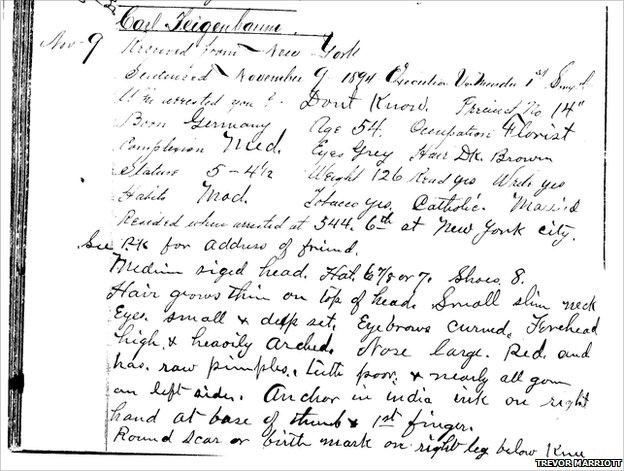 Carl Feigenbaum.
Nov 9 Received from New York
Sentenced November 9 1894 Execution Murder 1st
Who arrested you? Dont Know. Precinct No 14"
Born Germany Age 54. Occupation Florist
Complexion Med. Eyes Grey Hair Dk. Brown
Stature 5-4½ Weight 126 Read yes Write yes
Habits Mod. Tobacco yes. Catholic. Married
Resided when arrested at 544. 6th at New York City.
See Bk for address of friend.
Medium sized head. Hat. 6 7/8 or 7. Shoes. 8.
Hair grows thin on top of head. Small slim neck
Eyes. small & deep set. Eyebrows curved. Forehead
high. & heavily arched. Nose large. Red. and
has. raw pimples. teeth poor. & nearly all gone
on left side. Anchor in india ink on right
hand at base of thumb & 1st finger.
Round scar or birth mark on right leg below Knee
TREVOR MARRIOTT